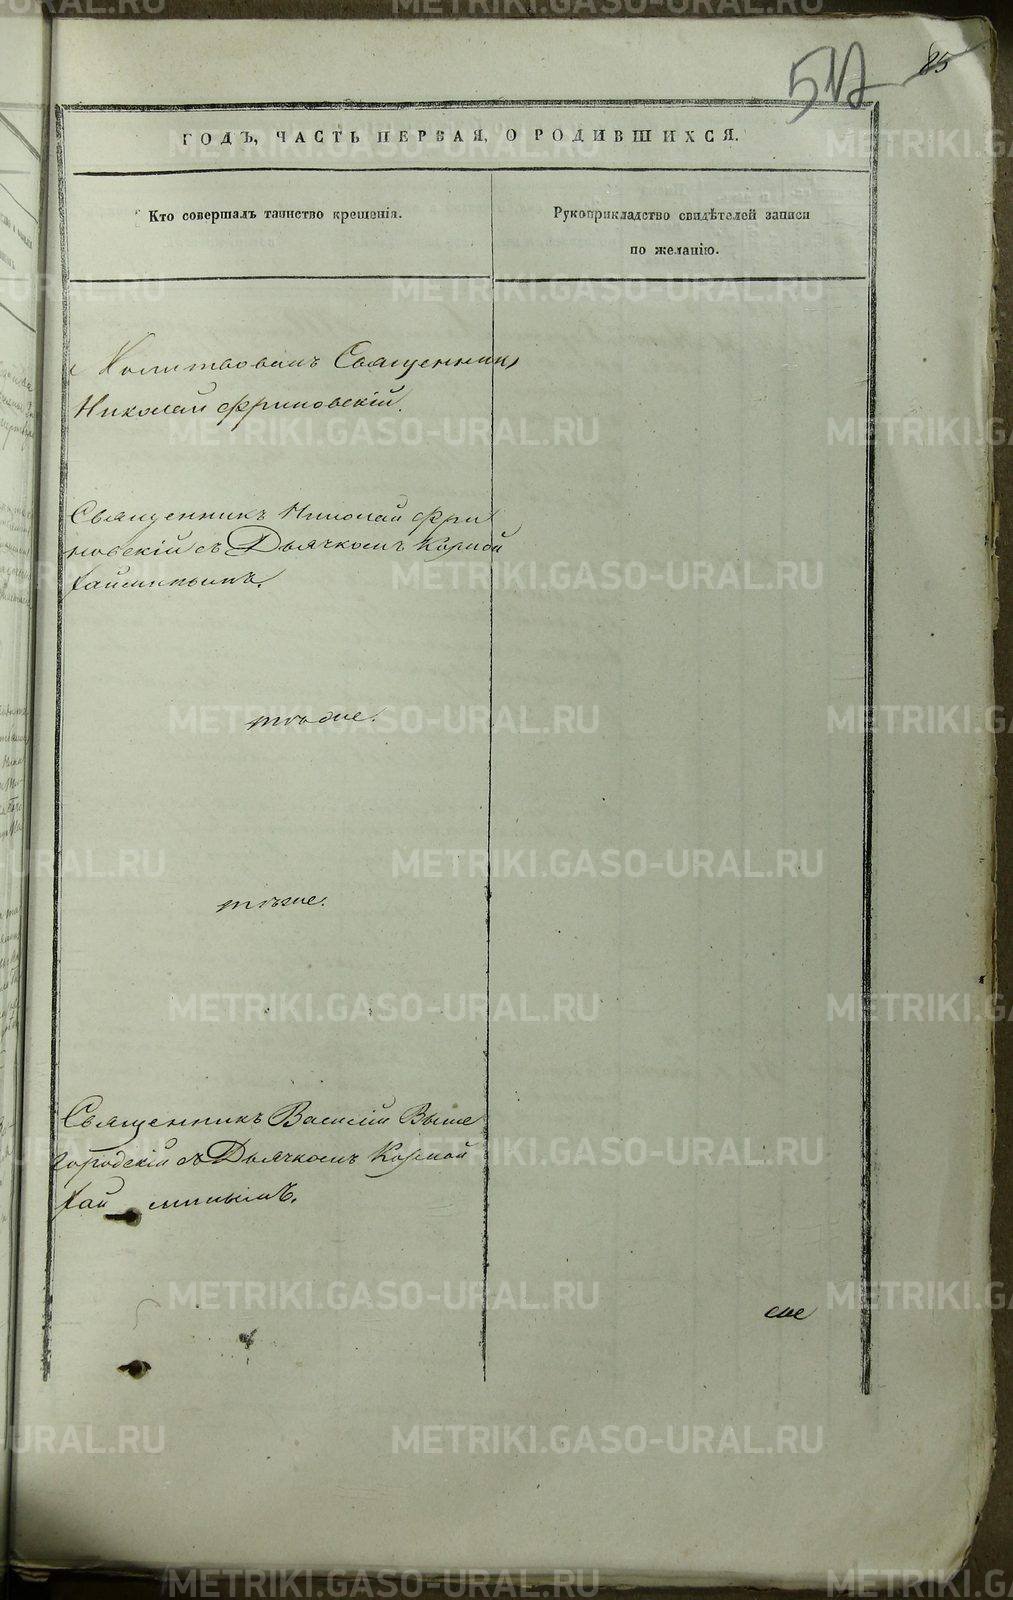 517
85
ГОДЪ, ЧАСТЬ ПЕРВАЯ, О РОДИВШИХСЯ.
Кто совершалъ таинство крещенія.
Рукоприкладство свидѣтелей записи
по желанію.
Молитвовалъ Священникъ
Николай Фриновскій.
Священникъ Николай Фри
новскій съ Дьячкомъ
тѣже.
тѣже.
Священникъ Василій Выше
городскій съ Дьячкомъ
METRIKI.GASO-URAL.RU